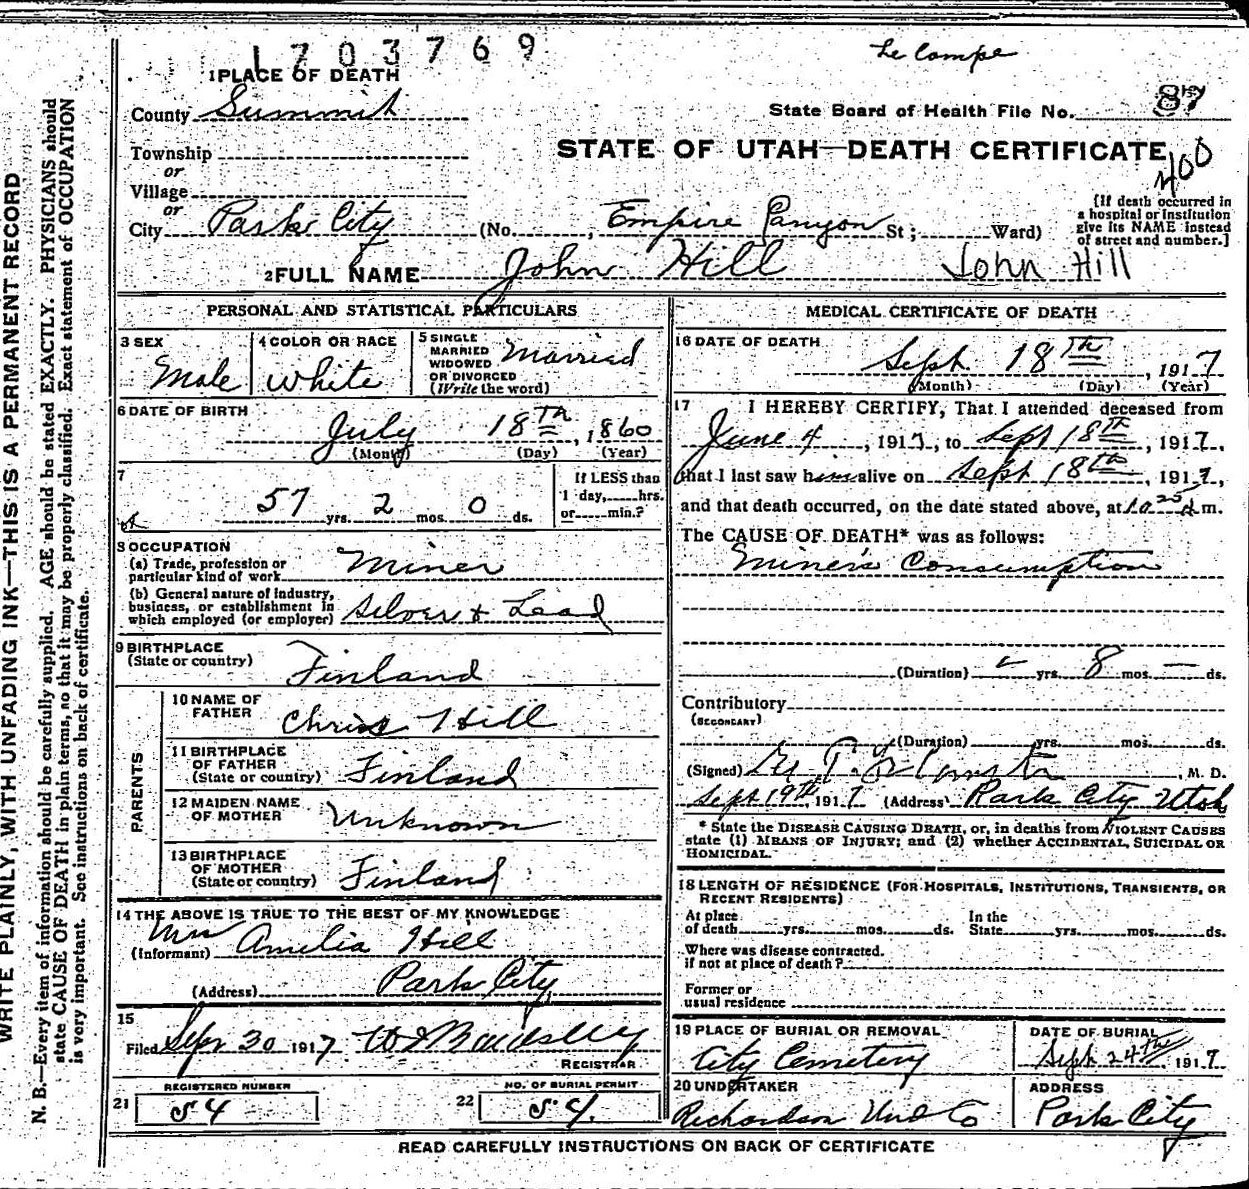 1703769
Le Compe
1 PLACE OF DEATH
County Summit
State Board of Health File No. 87
Township
or
STATE OF UTAH—DEATH CERTIFICATE
400
Village
or
City Park City (No. , Empire Canyon St; Ward)
[If death occurred in
a hospital or institution
give its NAME instead
of street and number.]
2 FULL NAME John Hill John Hill
PERSONAL AND STATISTICAL PARTICULARS
3 SEX
Male
4 COLOR OR RACE
White
5 SINGLE
MARRIED
WIDOWED
OR DIVORCED
(Write the word)
Married
6 DATE OF BIRTH
July 18TH, 1860
(Month) (Day) (Year)
7
57 yrs. 2 mos. 0 ds.
If LESS than
1 day, hrs.
or min.?
8 OCCUPATION
(a) Trade, profession or
particular kind of work Miner
(b) General nature of industry,
business, or establishment in
which employed (or employer) Silver & Lead
9 BIRTHPLACE
(State or country) Finland
PARENTS
10 NAME OF
FATHER Chris Hill
11 BIRTHPLACE
OF FATHER
(State or country) Finland
12 MAIDEN NAME
OF MOTHER Unknown
13 BIRTHPLACE
OF MOTHER
(State or country) Finland
14 THE ABOVE IS TRUE TO THE BEST OF MY KNOWLEDGE
(Informant) Mrs Amelia Hill
(Address) Park City
15
Filed Sep 30 1917
REGISTRAR
REGISTERED NUMBER
21 54
NO. OF BURIAL PERMIT
22 54
MEDICAL CERTIFICATE OF DEATH
16 DATE OF DEATH
Sept 18TH, 1917
(Month) (Day) (Year)
17 I HEREBY CERTIFY, That I attended deceased from
June 4, 1917, to Sept 18th, 1917,
that I last saw him alive on Sept 18th, 1917,
and that death occurred, on the date stated above, at 10 25 m.
The CAUSE OF DEATH* was as follows:
Miner's Consumption
(Duration) yrs. 8 mos. — ds.
Contributory
(SECONDARY)
(Duration) yrs. mos. ds.
(Signed) , M. D.
Sept 19th 1917 (Address) Park City Utah
* State the DISEASE CAUSING DEATH, or, in deaths from VIOLENT CAUSES
state (1) MEANS OF INJURY; and (2) whether ACCIDENTAL, SUICIDAL OR
HOMICIDAL.
18 LENGTH OF RESIDENCE (FOR HOSPITALS, INSTITUTIONS, TRANSIENTS, OR
RECENT RESIDENTS)
At place
of death yrs. mos. ds.
In the
State yrs. mos. ds.
Where was disease contracted.
if not at place of death?
Former or
usual residence
19 PLACE OF BURIAL OR REMOVAL
City Cemetery
DATE OF BURIAL
Sept 24th, 1917
20 UNDERTAKER
Richardson Und Co
ADDRESS
Park City
READ CAREFULLY INSTRUCTIONS ON BACK OF CERTIFICATE
WRITE PLAINLY, WITH UNFADING INK—THIS IS A PERMANENT RECORD
N. B.—Every item of information should be carefully supplied. AGE should be stated EXACTLY. PHYSICIANS should
state CAUSE OF DEATH in plain terms, so that it may be properly classified. Exact statement of OCCUPATION
is very important. See instructions on back of certificate.